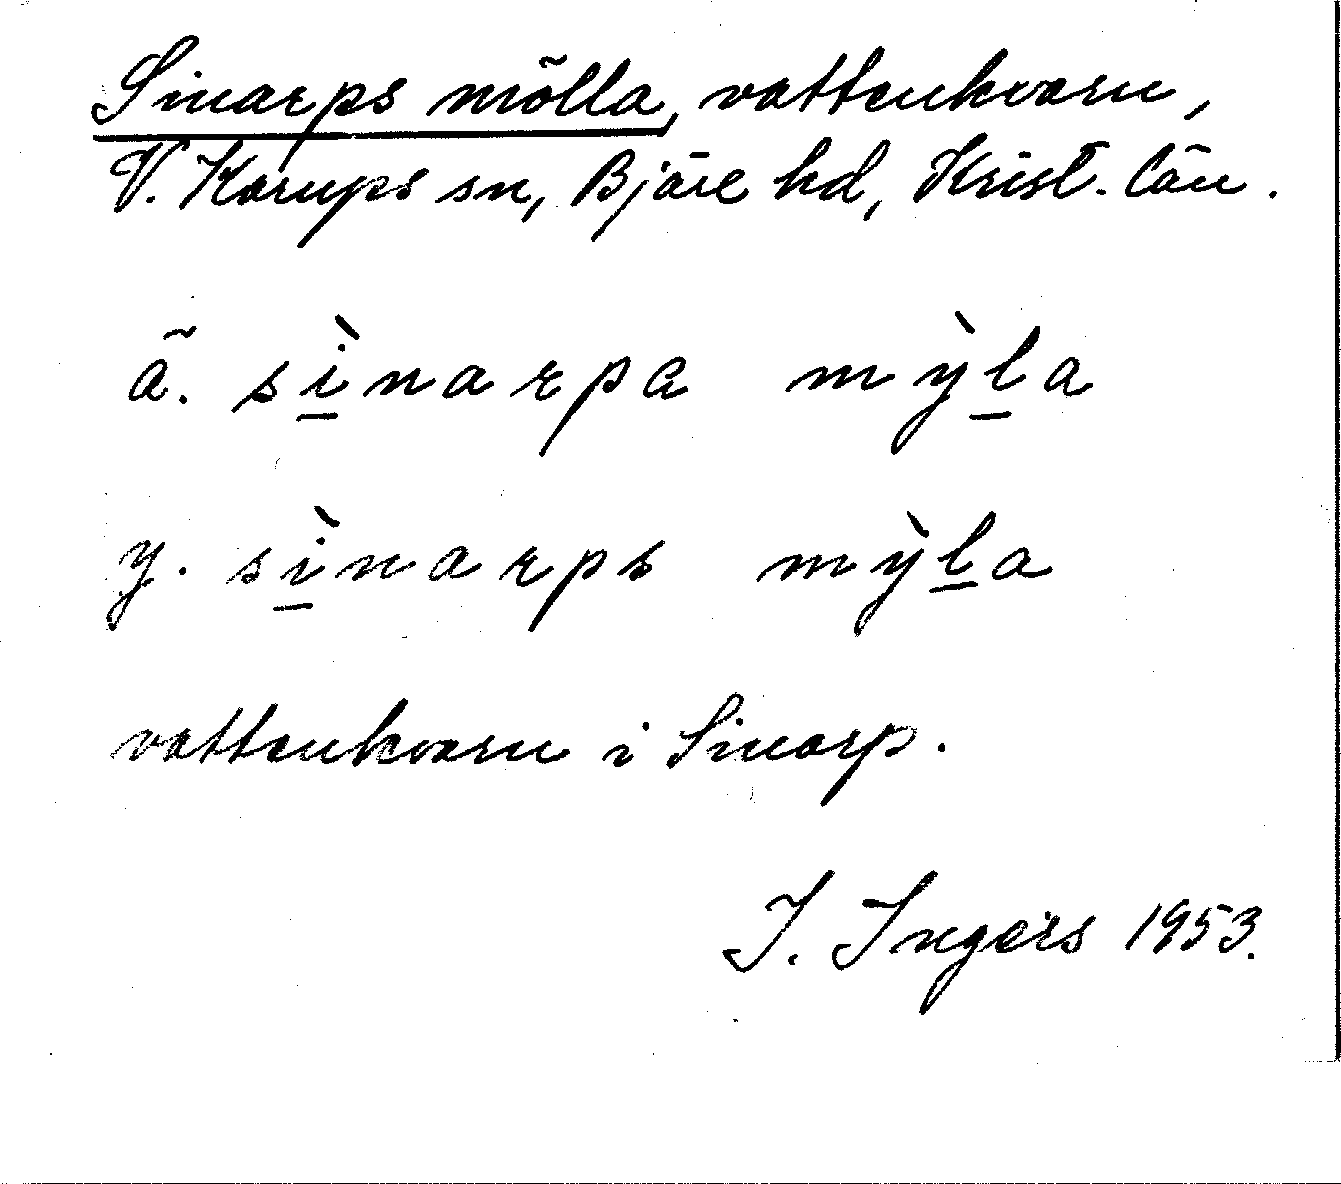 Sinarps mölla, vattenkvarn,
V. Karups sn, Bjäre hd, Krist. län.
ä. sì̱narpa mỳḻa
y. sì̱narps mỳḻa
vattenkvarn i Sinarp.
I. Ingers 1953.